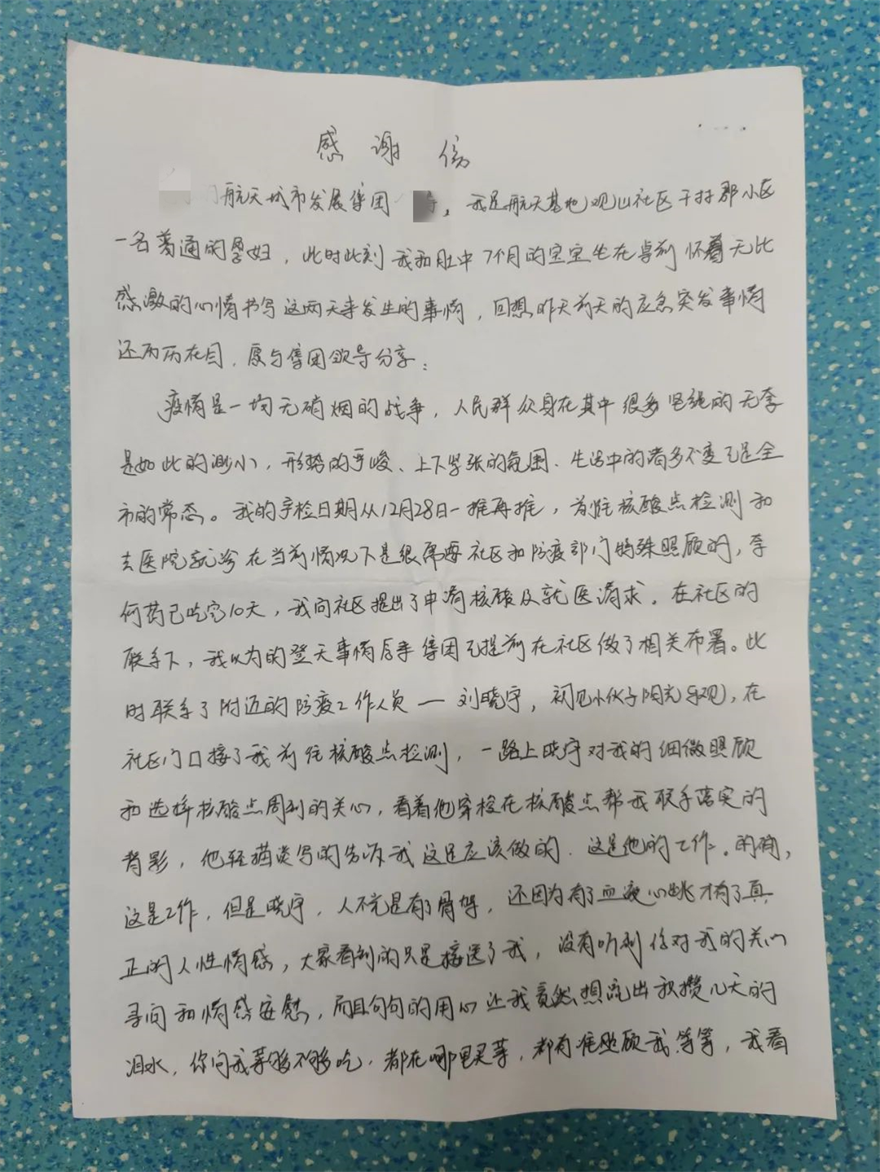 感谢信
航天城市发展集团 ，我是航天基地观山社区干村郡小区
一名普通的孕妇，此时此刻我和肚中7个月的宝宝坐在桌前怀着无比
感激的心情书写这两天来发生的事情，回想昨天前天的应急突发事情
还历历在目，愿与集团领导分享：
疫情是一场无硝烟的战争，人民群众身在其中很多坚强的无奈
是如此的渺小，形势的严峻、上下紧张的氛围、生活中的诸多不变已是全
市的常态。我的孕检日期从12月28日一推再推，前往核酸点检测和
去医院就诊在当前情况下是很需要社区和防疫部门特殊照顾的，奈
何药已吃完10天，我向社区提出了申请核酸及就医请求。在社区的
联系下，我以为的登天事情后来集团已提前在社区做了相关布署。此
时联系了附近的防疫工作人员—刘晓宇，初见小伙子阳光乐观，在
社区门口接了我前往核酸点检测，一路上晓宇对我的细微照顾
和选择核酸点周到的关心，看着他穿梭在核酸点帮我联系落实的
背影，他轻描淡写的告诉我这是应该做的，这是他的工作。的确，
这是工作，但是晓宇，人不光是有了骨架，还因为有了血液心跳才有了真
正的人性情感，大家看到的只是接送了我，没有听到你对我的关心
寻问和情感安慰，而且句句的用心让我竟然想流出积攒几天的
泪水，你问我菜够不够吃，都在哪里买菜，都有谁照顾我等等，我看